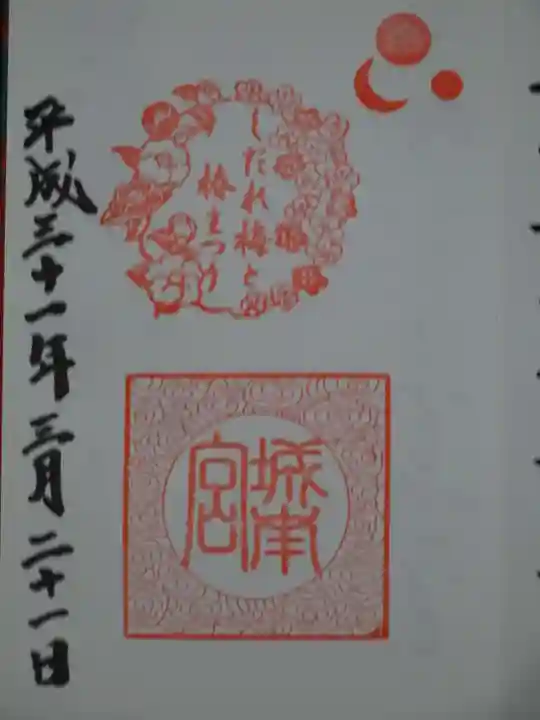 しだれ梅と
椿まつり
城南
宮
平成三十一年三月二十一日